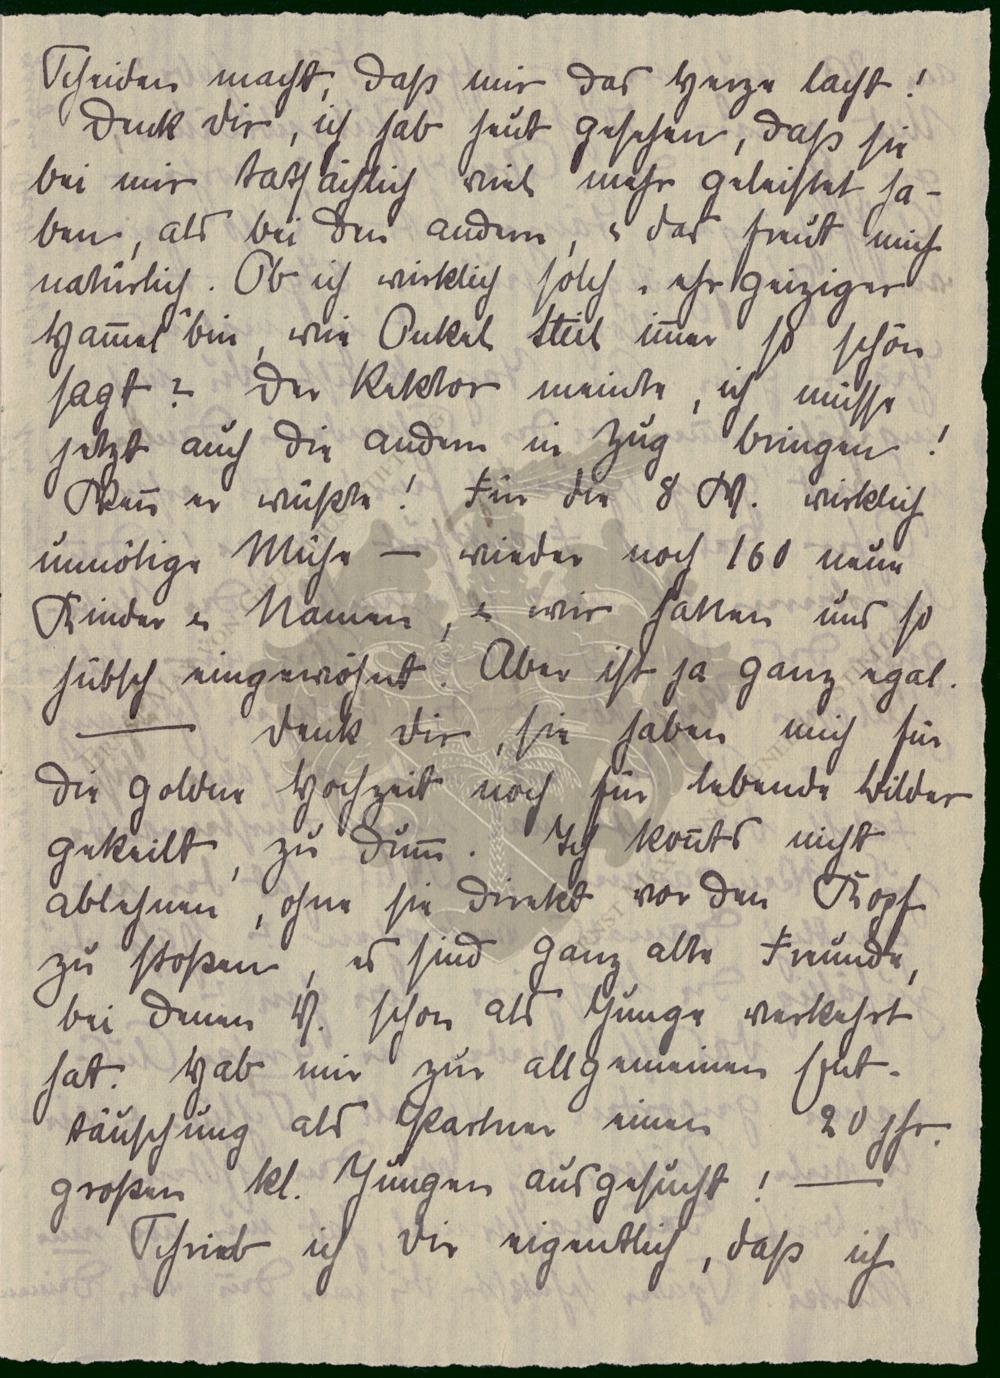 Scheiden macht, daß mir das Herze lacht!
Denk Dir, ich hab heut gesehen, daß sie
bei mir tatsächlich viel mehr geleistet ha-
ben, als bei den andern, u das freut mich
natürlich. Ob ich wirklich solch "ehrgeiziger
Ham̅el" bin, wie Onkel im̅er so schön
sagt? Der Rektor meinte, ich müsse
jetzt auch die andern in Zug bringen!
Wen̅ er wüßte! Für die 8 W. wirklich
unnötige Mühe — wieder noch 160 neue
Kinder u Namen, u wir hatten uns so
hübsch eingewöhnt. Aber ist ja ganz egal.
— Denk Dir, sie haben mich für
die goldne Hochzeit noch für lebende Bilder
gekeilt, zu dum̅. Ich kon̅ts nicht
ablehnen, ohne sie direkt vor den Kopf
zu stoßen, es sind ganz alte Freunde,
bei denen V. schon als Junge verkehrt
hat. Hab mir zur allgemeinen Ent-
täuschung als Partner einen 20 jhr.
großen kl. Jungen ausgesucht! —
Schrieb ich Dir eigentlich, daß ich